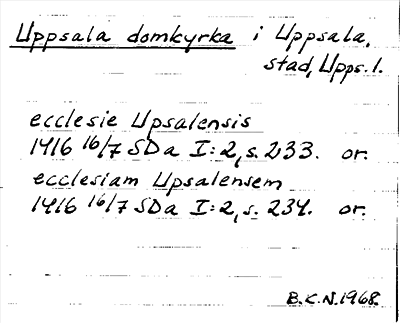 Uppsala domkyrka i Uppsala,
stad, Upps. l.
ecclesie Upsalensis
1416 16/7 SDa I:2, s. 233. or.
ecclesiam Upsalensem
1416 16/7 SDa I:2, s. 234. or.
B.C.N. 1968.